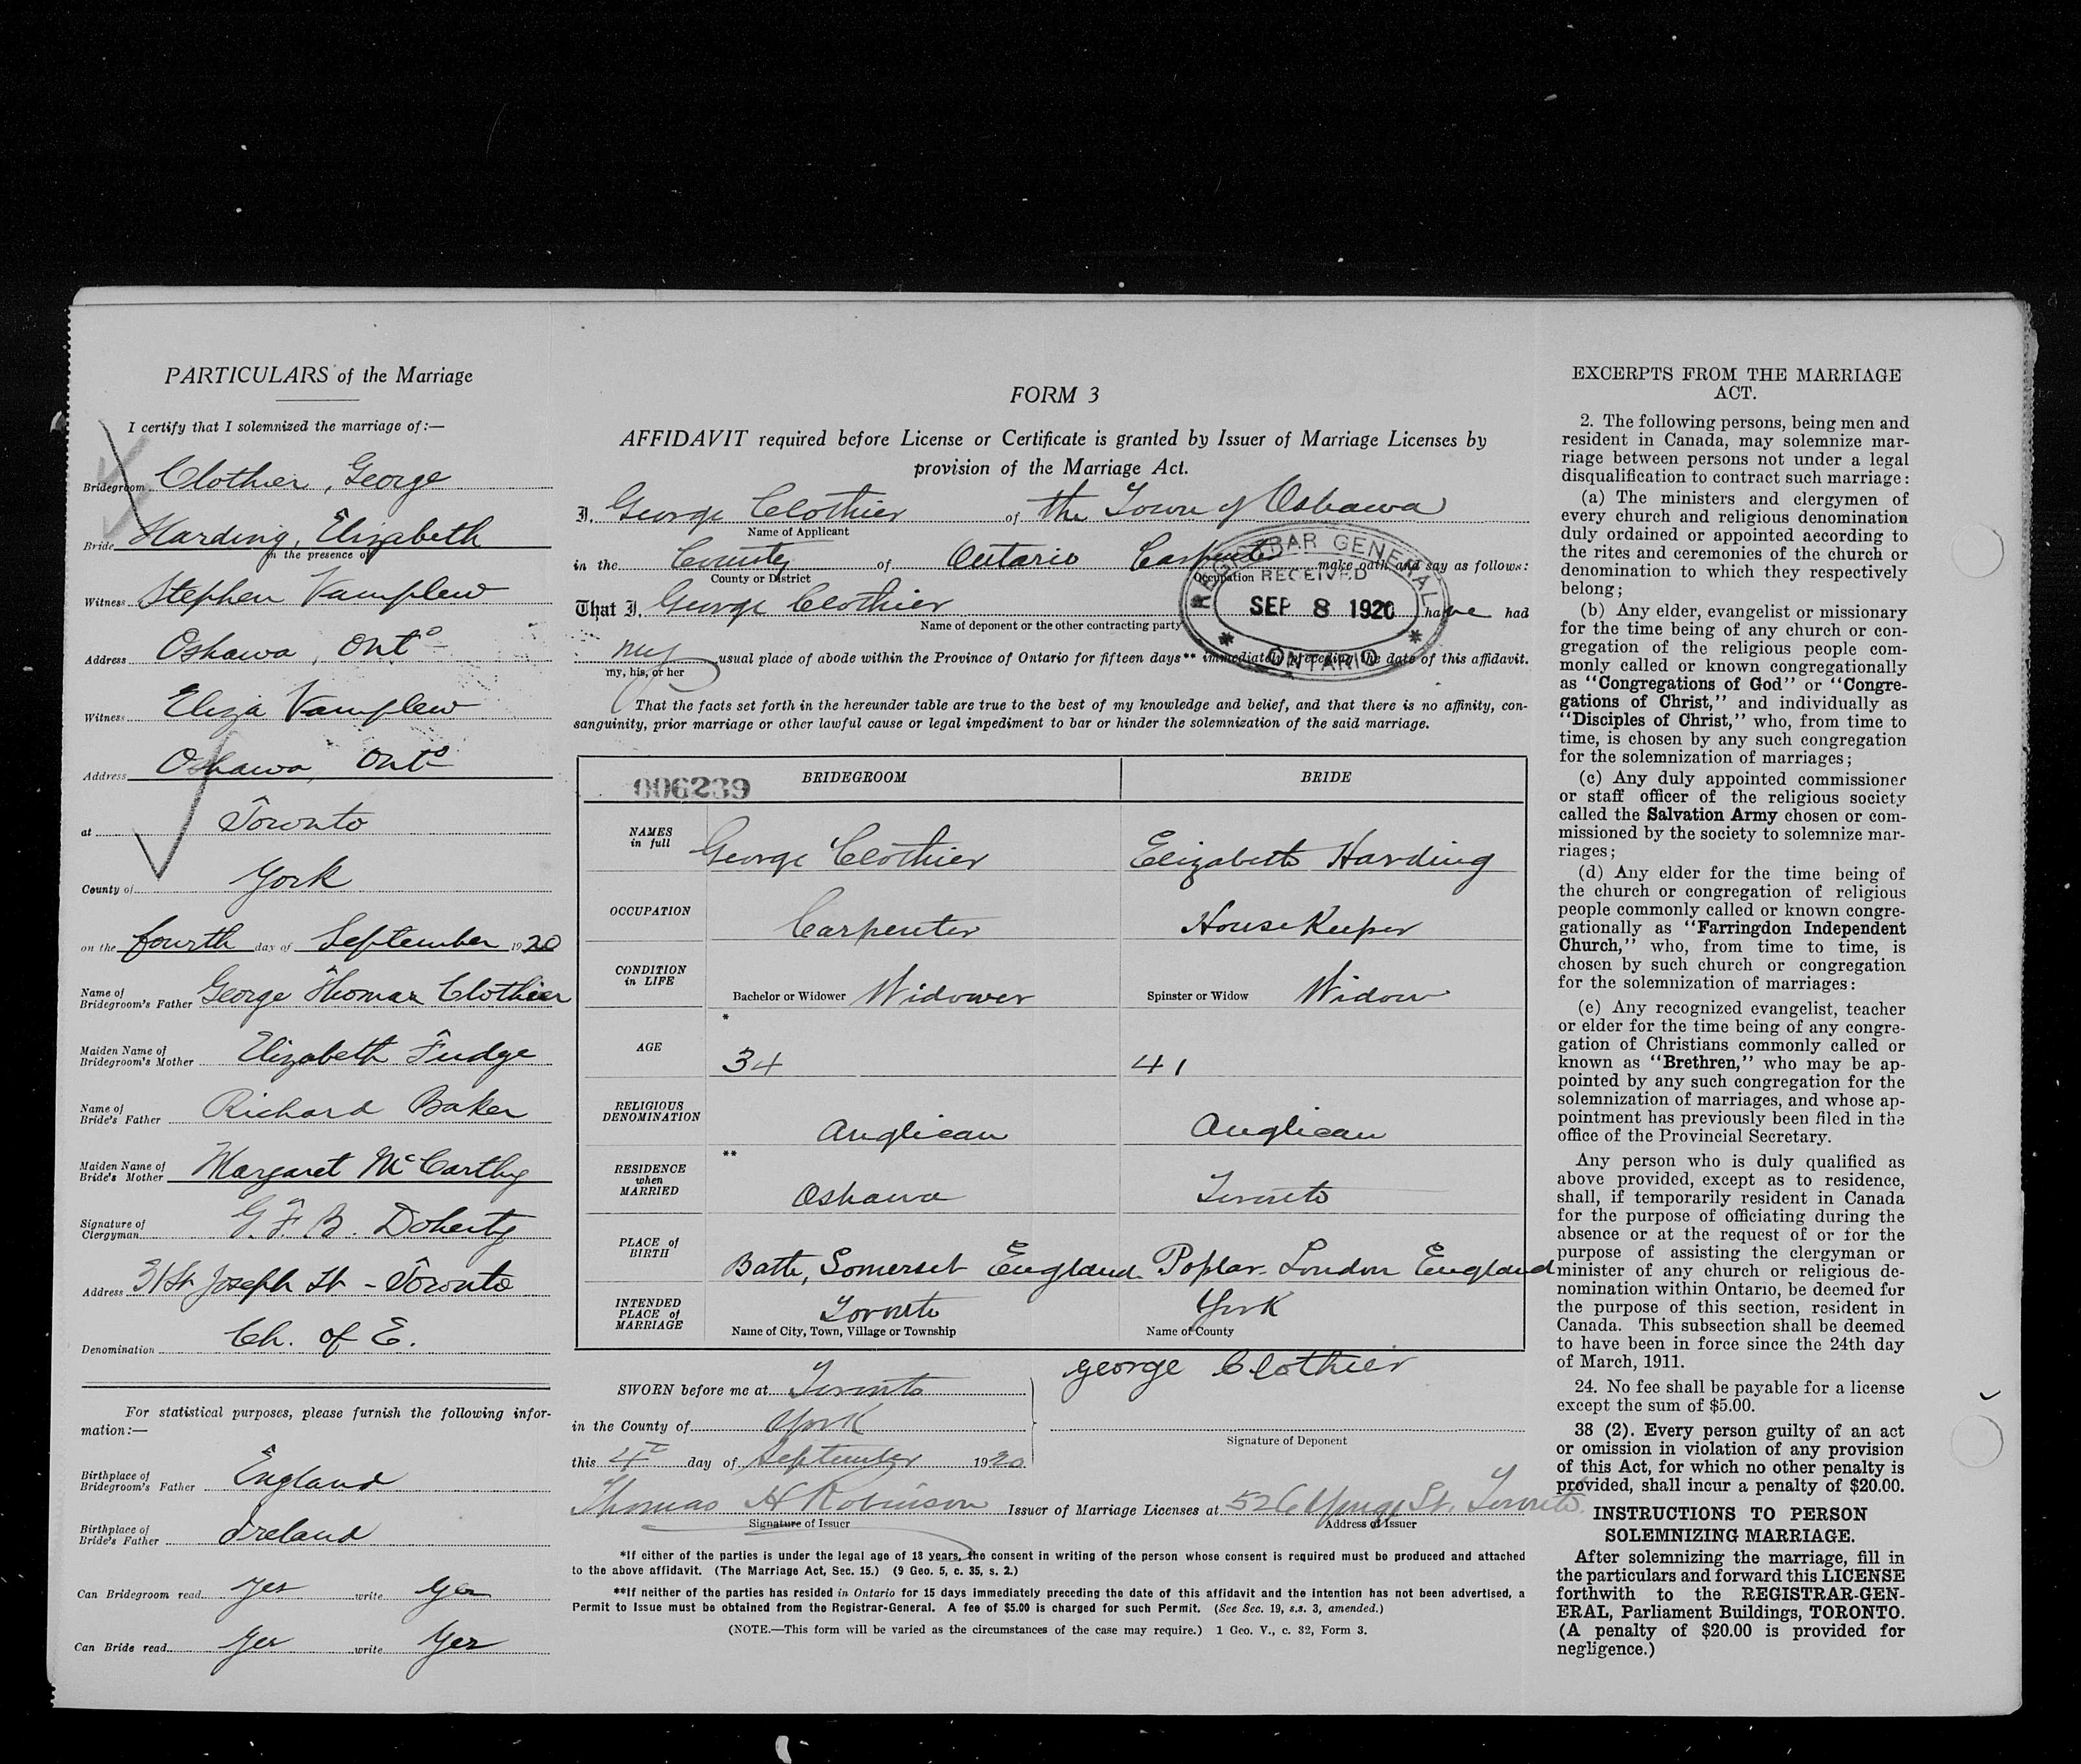 PARTICULARS of the Marriage
I certify that I solemnized the marriage of:—
Bridegroom Clothier, George
Bride Harding, Elizabeth
in the presence of
Witness Stephen Vamplew
Address Oshawa, Ont°
Witness Eliza Vamplew
Address Oshawa, Ont°
at Toronto
County of York
on the fourth day of September 1920
Name of Bridegroom's Father George Thomas Clothier
Maiden Name of Bridegroom's Mother Elizabeth Fudge
Name of Bride's Father Richard Baker
Maiden Name of Bride's Mother Margaret McCarthy
Signature of Clergyman G. F. B. Doherty
Address 31 St Joseph St - Toronto
Denomination Ch. of E.
For statistical purposes, please furnish the following infor-
mation:—
Birthplace of Bridegroom's Father England
Birthplace of Bride's Father Ireland
Can Bridegroom read yes write yes
Can Bride read yes write yes
FORM 3
AFFIDAVIT required before License or Certificate is granted by Issuer of Marriage Licenses by
provision of the Marriage Act.
I, George Clothier of the Town of Oshawa
Name of Applicant
in the County of Ontario Carpenter make oath and say as follows:
County or District Occupation
That I, George Clothier have had
Name of deponent or the other contracting party
my usual place of abode within the Province of Ontario for fifteen days** immediately preceding the date of this affidavit.
my, his, or her
REGISTRAR GENERAL
RECEIVED
SEP 8 1920
* ONTARIO *
That the facts set forth in the hereunder table are true to the best of my knowledge and belief, and that there is no affinity, con-
sanguinity, prior marriage or other lawful cause or legal impediment to bar or hinder the solemnization of the said marriage.
006239
BRIDEGROOM BRIDE
NAMES in full George Clothier Elizabeth Harding
OCCUPATION Carpenter HouseKeeper
CONDITION in LIFE Bachelor or Widower Widower Spinster or Widow Widow
*
AGE 34 41
RELIGIOUS DENOMINATION Anglican Anglican
**
RESIDENCE when MARRIED Oshawa Toronto
PLACE of BIRTH Bath, Somerset England. Poplar. London England
INTENDED PLACE of MARRIAGE Toronto York
Name of City, Town, Village or Township Name of County
SWORN before me at Toronto
in the County of York
this 4th day of September 1920
George Clothier
Signature of Deponent
Thomas H Robinson Issuer of Marriage Licenses at 526 Yonge St. Toronto
Signature of Issuer Address of Issuer
*If either of the parties is under the legal age of 18 years, the consent in writing of the person whose consent is required must be produced and attached
to the above affidavit. (The Marriage Act, Sec. 15.) (9 Geo. 5, c. 35, s. 2.)
**If neither of the parties has resided in Ontario for 15 days immediately preceding the date of this affidavit and the intention has not been advertised, a
Permit to Issue must be obtained from the Registrar-General. A fee of $5.00 is charged for such Permit. (See Sec. 19, s.s. 3, amended.)
(NOTE.—This form will be varied as the circumstances of the case may require.) 1 Geo. V., c. 32, Form 3.
EXCERPTS FROM THE MARRIAGE
ACT.
2. The following persons, being men and
resident in Canada, may solemnize mar-
riage between persons not under a legal
disqualification to contract such marriage:
(a) The ministers and clergymen of
every church and religious denomination
duly ordained or appointed according to
the rites and ceremonies of the church or
denomination to which they respectively
belong;
(b) Any elder, evangelist or missionary
for the time being of any church or con-
gregation of the religious people com-
monly called or known congregationally
as "Congregations of God" or "Congre-
gations of Christ," and individually as
"Disciples of Christ," who, from time to
time, is chosen by any such congregation
for the solemnization of marriages;
(c) Any duly appointed commissioner
or staff officer of the religious society
called the Salvation Army chosen or com-
missioned by the society to solemnize mar-
riages;
(d) Any elder for the time being of
the church or congregation of religious
people commonly called or known congre-
gationally as "Farringdon Independent
Church," who, from time to time, is
chosen by such church or congregation
for the solemnization of marriages:
(e) Any recognized evangelist, teacher
or elder for the time being of any congre-
gation of Christians commonly called or
known as "Brethren," who may be ap-
pointed by any such congregation for the
solemnization of marriages, and whose ap-
pointment has previously been filed in the
office of the Provincial Secretary.
Any person who is duly qualified as
above provided, except as to residence,
shall, if temporarily resident in Canada
for the purpose of officiating during the
absence or at the request of or for the
purpose of assisting the clergyman or
minister of any church or religious de-
nomination within Ontario, be deemed for
the purpose of this section, resident in
Canada. This subsection shall be deemed
to have been in force since the 24th day
of March, 1911.
24. No fee shall be payable for a license
except the sum of $5.00.
38 (2). Every person guilty of an act
or omission in violation of any provision
of this Act, for which no other penalty is
provided, shall incur a penalty of $20.00.
INSTRUCTIONS TO PERSON
SOLEMNIZING MARRIAGE.
After solemnizing the marriage, fill in
the particulars and forward this LICENSE
forthwith to the REGISTRAR-GEN-
ERAL, Parliament Buildings, TORONTO.
(A penalty of $20.00 is provided for
negligence.)